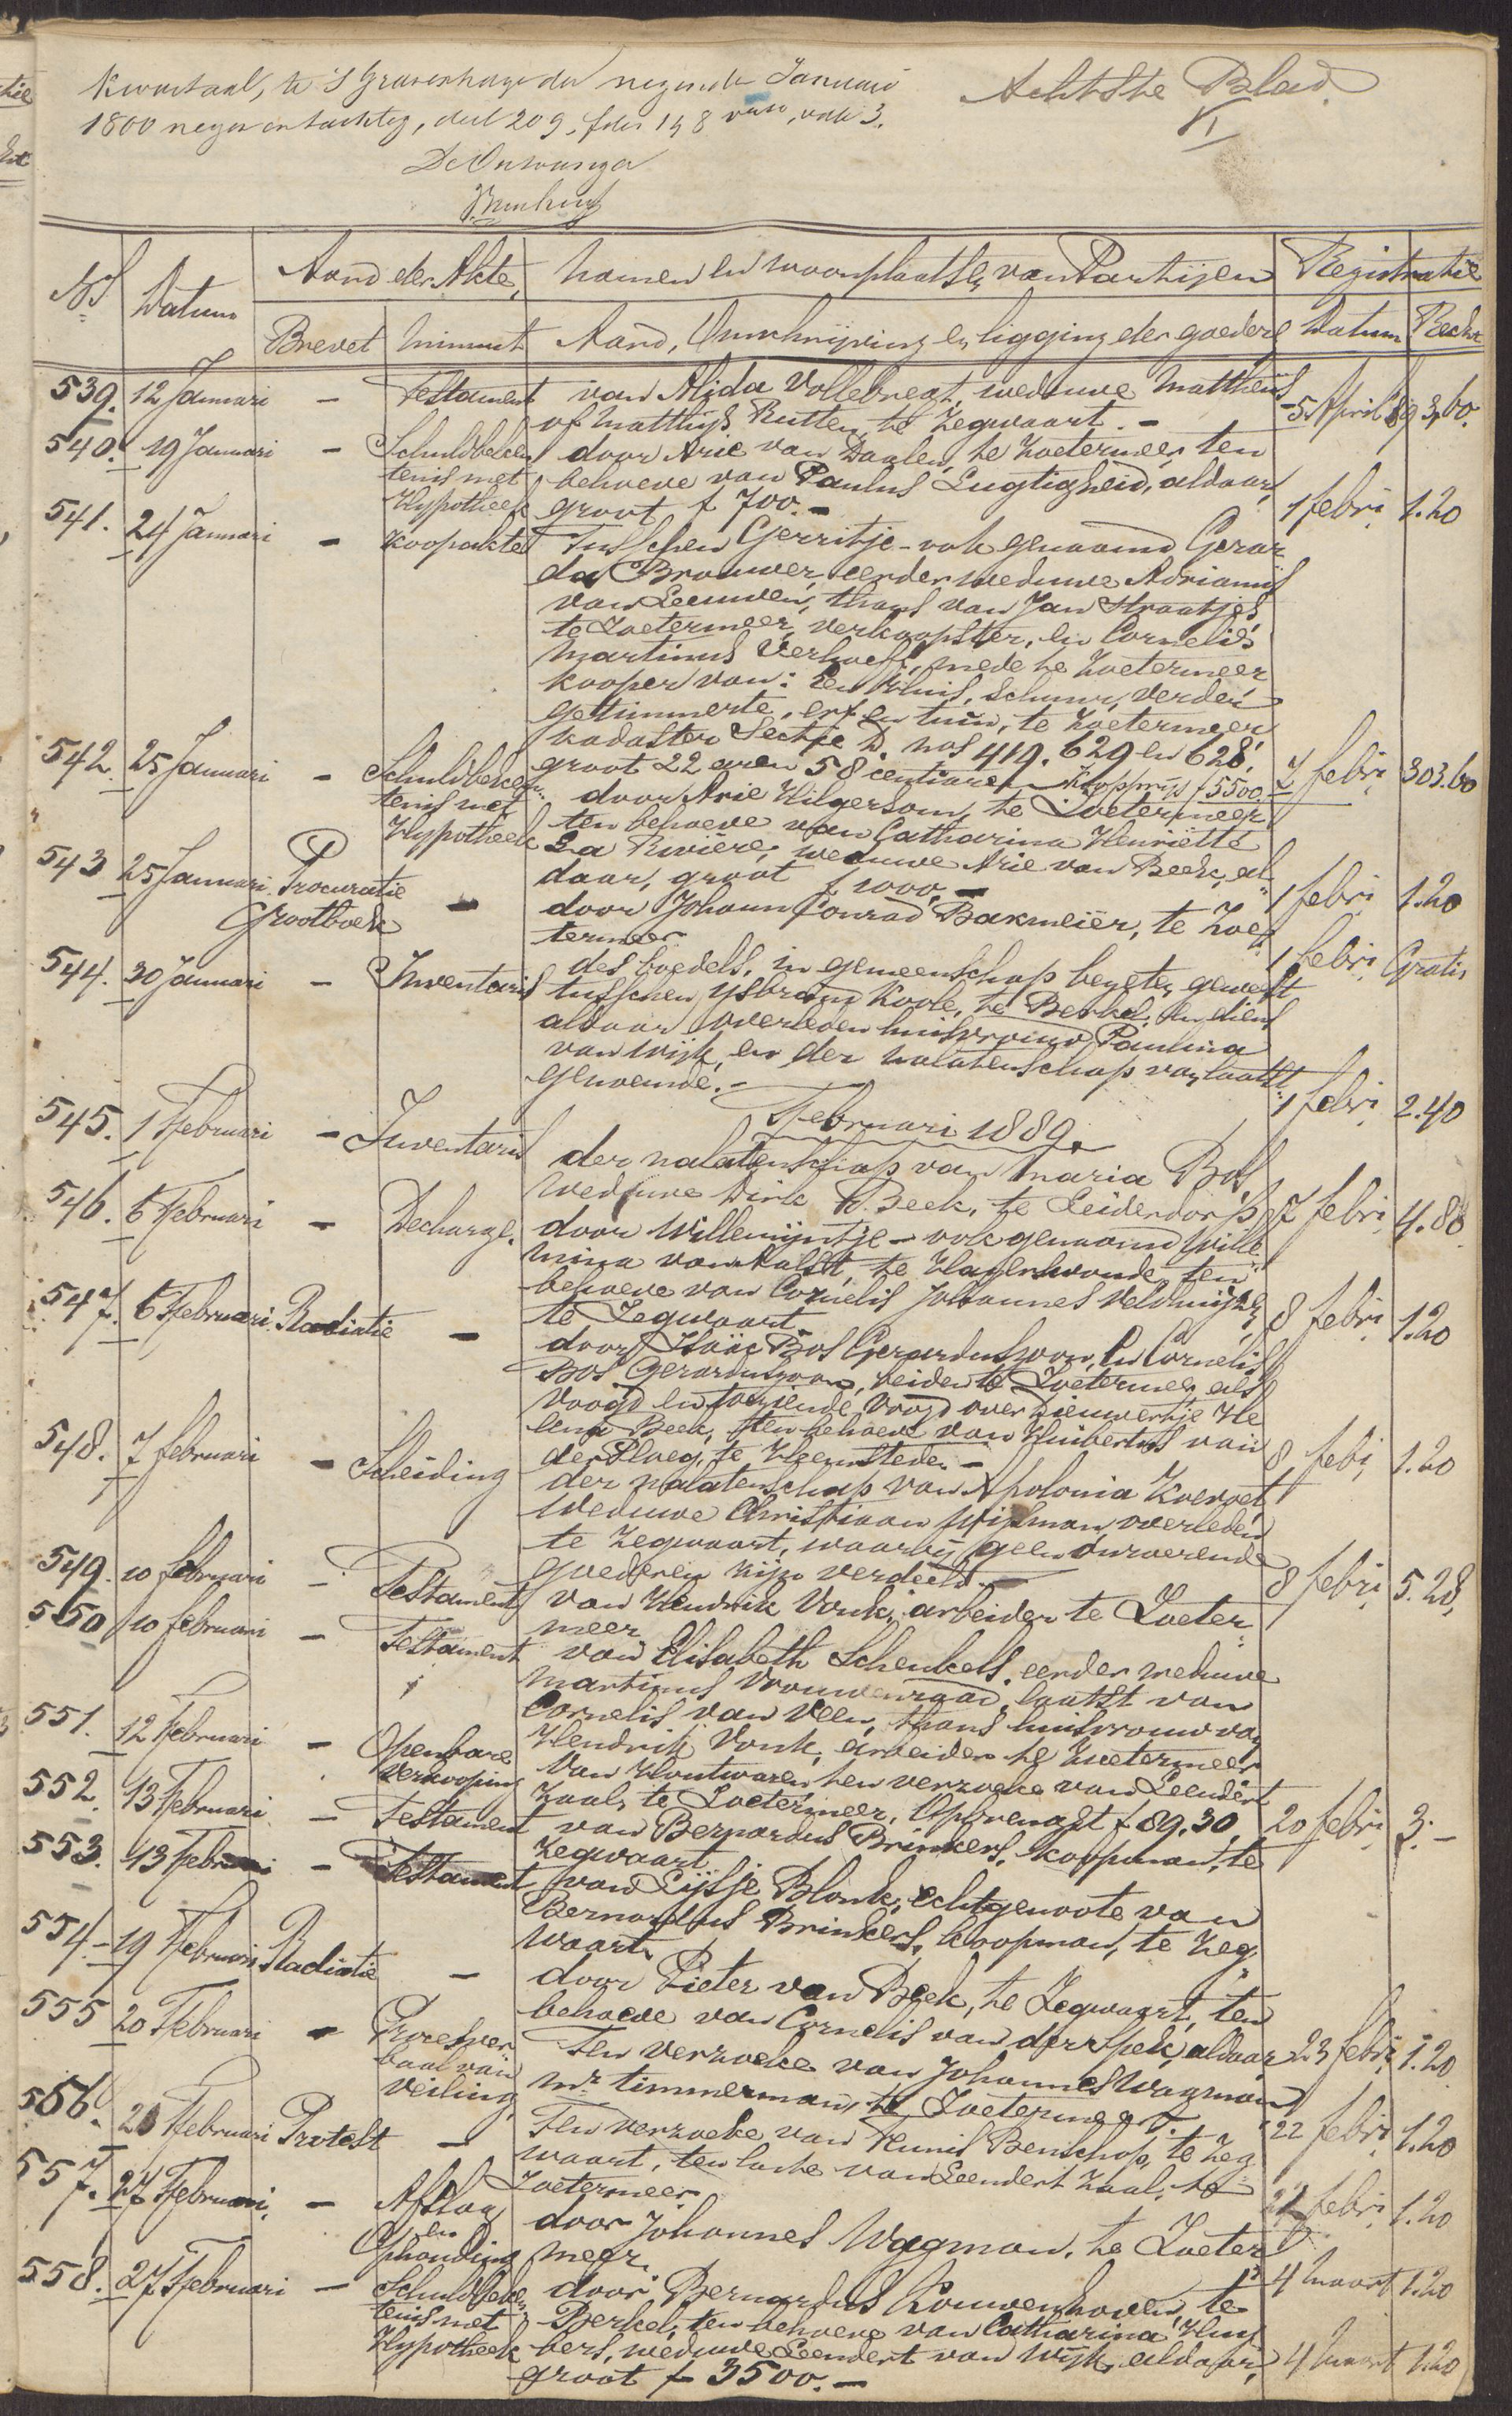 Kwartaal, te 's Gravenhage den negende Januari
1800 negen en tachtig, deel 209, folio 148 vak 3.
De Ontvanger
Achtste Blad
VI
Nos Datum Aard der Akte, Namen en woonplaatsen van Partijen Registratie
Brevet Minuut Aard, Omschrijving en ligging der goederen Datum Recht
539. 12 Januari - Testament van Alida Vollebregt, weduwe Mattheus
of Matthijs Rutten te Zegwaart. - 5 April 89 3,60.
540. 19 Januari - Schuldbeken door Arie van Daalen, te Zoetermeer, ten
tenis met behoeve van Paulus Lugtigheid, aldaar,
Hypotheek groot f 700.- 1 febri 1.20
541. 24 Januari - Koopakte Tusschen Gerritje - ook genaamd Gerar
da Brouwer, eerder weduwe Adrianus
van Leeuwen, thans van Jan Straatjes,
te Zoetermeer, verkoopster, en Cornelis
Martinus Verhoeff, mede te Zoetermeer
kooper van: Een Huis, schuur, verder
getimmerte, erf en tuin, te Zoetermeer
kadaster Sectie D. nos 419. 629 en 628,
groot 22 aren 58 centiaren Koopprijs f 5500. 2 febri 303.60
542. 25 Januari - Schuldbeken door Arie Hilgersom, te Zoetermeer
tenis met ten behoeve van Catharina Henriëtte
Hypotheek La Rivière, weduwe Arie van Beek, al
daar, groot f 1000.- 1 febri 1.20
543 25 Januari Procuratie - door Johann Conrad Bakmeiër, te Zoe
Grootboek termeer 1 febri Gratis
544. 30 Januari - Inventaris des boedels, in gemeenschap bezeten geweest
tusschen IJsbrand Koole, te Berkel, en diens
aldaar overleden huisvrouw Paulina
van Wijk, en der nalatenschap van laatst
genoemde.- 1 febri 2.40
Februari 1889.
545. 1 Februari - Inventaris der nalatenschap van Maria Bos,
weduwe Dirk Beek, te Leiderdorp. 7 febri 4.80
546. 6 Februari - Decharge. door Willemijntje - ook genaamd Wille
mina van Aalst, te Hazerswoude, ten
behoeve van Cornelis Johannes Veldhuijzen
te Zegwaart. 8 febri 1.20
547. 6 Februari Radiatie - door Isaäc Bos Gerarduszoon, en Cornelis
Bos Gerarduszoon, beiden te Zoetermeer, als
voogd en toeziende voogd over Dieuwertje He
lena Beek, ten behoeve van Huibertus van
der Ploeg, te Heemstede.- 8 febi 1.20
548. 7 februari - Scheiding der nalatenschap van Apolonia Koevoet,
weduwe Christiaan Wijsman, overleden
te Zegwaart, waarbij geen onroerende
goederen zijn verdeeld.- 8 febri 5.28,
549. 10 februari - Testament van Hendrik Vonk, arbeider te Zoeter
meer
550 10 februari - Testament van Elisabeth Schenkels, eerder weduwe
Martinus Vrouwenraad, laatst van
Cornelis van Veen, thans huisvrouw van
Hendrik Vonk, arbeider te Zoetermeer
551. 12 Februari - Openbare Van Houtwaren, ten verzoeke van Leendert
Verkooping Zaal, te Zoetermeer, Opbrengst f 89,30, 20 febri 3.-
552. 13 Februari - Testament van Bernardus Brinkers, koopman, te
Zegwaart
553. 13 Februari - Testament van Lijsje Blonk, echtgenoote van
Bernardus Brinkers, koopman, te Zeg
waart.
554.- 19 Februari Radiatie - door Pieter van Beek, te Zegwaart, ten
behoeve van Cornelis van der Spek, aldaar 23 febri 1.20
555 20 Februari - Procesver Ten verzoeke van Johannes Wagman
baal van mr timmerman, te Zoetermeer. 22 febri 1.20
veiling,
556. 21 Februari Protest - Ten verzoeke van Teunis Benschop, te Zeg
waart, ten laste van Leendert Zaal, te
Zoetermeer. 22 febri 1.20
557. 27 Februari, - Afslag door Johannes Wagman, te Zoeter
en
Ophouding meer. 4 Maart 1.20
558. 27 Februari - Schuldbeken door Bernardus Kouwenhoven, te
tenis met Berkel, ten behoeve van Catharina Huij
Hypotheek bers, weduwe Leendert van Wijk, aldaar, 4 Maart 1.20
groot f 3500.-